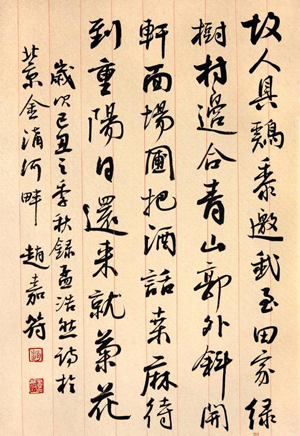 故人具鷄黍邀我至田家綠
樹村邊合青山郭外斜開
軒面場圃把酒話桑麻待
到重陽日還來就菊花
歲次己丑之季秋錄孟浩然詩於
北京金浦河畔 趙嘉符